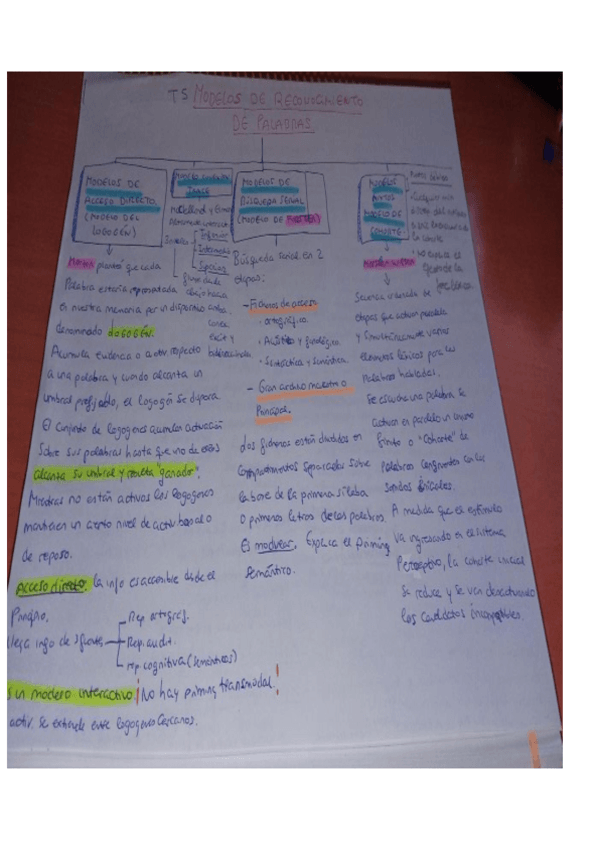 T5 MODELOS DE RECONOCIMIENTO
DE PALABRAS
MODELOS DE
ACCESO DIRECTO
(MODELO DEL
LOGOGÉN)
Morton planteó que cada
Palabra estaría representada
en nuestra memoria por un dispositivo
denominado LOGOGÉN.
Acumula evidencia a activ. respecto
a una palabra y cuando alcanza un
umbral prefijado, el logogén se dispara
El conjunto de logogenes acumulan activación
sobre sus palabras hasta que uno de ellos
alcanza su umbral y resulta "ganador".
Mientras no están activos los logogenes
mantienen un cierto nivel de activ basal o
de reposo.
Acceso directo: la info es accesible desde el
Principio.
llega info de 3 fuentes
Rep. ortográf.
Rep. audit.
rep. cognitiva (semánticos)
Es un modelo interactivo! No hay priming transmodal!
activ. se extiende entre logogenes cercanos.
TRACE
McClelland y
3 niveles
Inferior
Intermedio
Superior
MODELOS DE
BÚSQUEDA SERIAL
(MODELO DE FORSTER)
Búsqueda serial en 2
etapas:
- Ficheros de acceso
· ortográfico
· Acústico y fonológico
· Sintáctica y semántica.
- Gran archivo maestro o
Principal.
Los ficheros están divididos en
compartimentos separados sobre
la base de la primera sílaba
o primeras letras de las palabras.
Es modular. Explica el Priming
Semántico.
MODELOS
MIXTOS
MODELO DE
COHORTE
Marslen-Wilson
Secuencia ordenada de
etapas que activan paralela
y simultáneamente varios
elementos léxicos para las
Palabras habladas.
Se escucha una palabra se
activan en paralelo un número
finito o "Cohorte" de
Palabras congruentes con los
sonidos iniciales.
A medida que el estímulo
va ingresando en el sistema
Perceptivo, la cohorte inicial
se reduce y se van desactivando
los candidatos incompatibles.